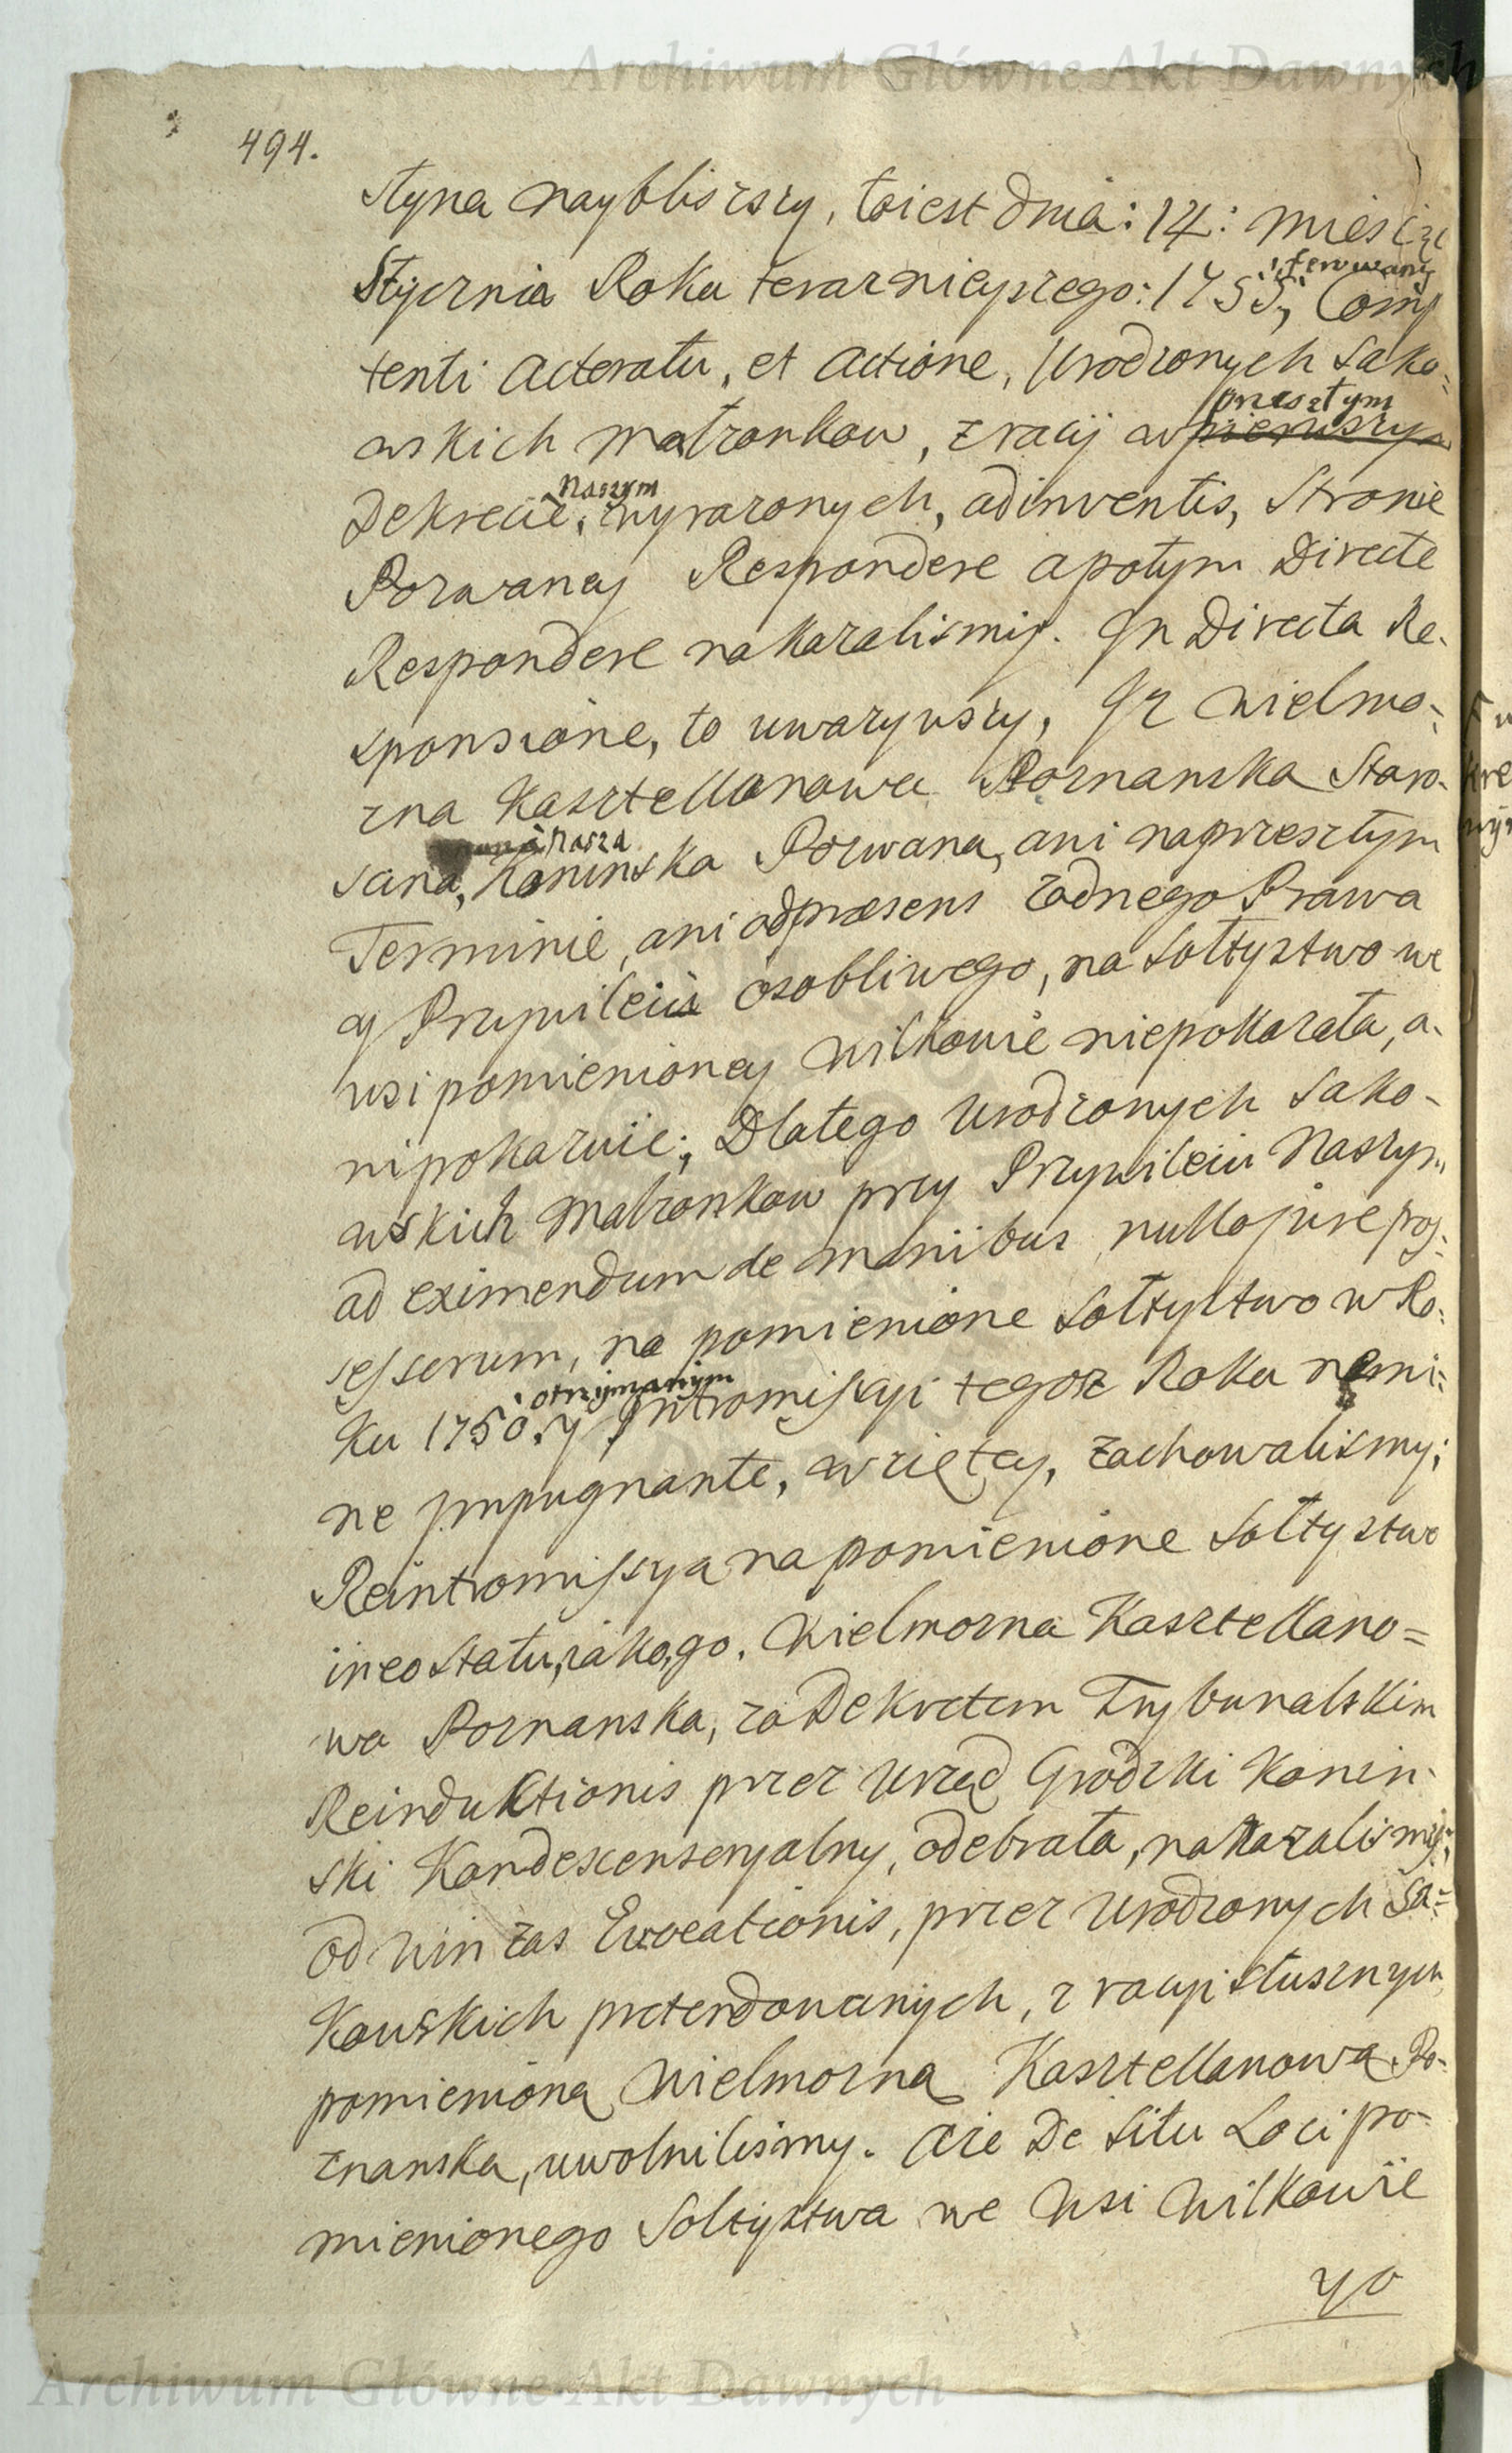 Archiwum Główne Akt Dawnych
494.
styna nayblisszy, to iest dnia: 14: miesią
Stycznia Roku terazniejszego: 1755,
tenti Actoratu, et Actione, Urodzonych Sako-
przeszłym
wskich Małzonkow, z racij w pierwszym
Naszym
Dekrecie, wyrazonych, adinventis, Stronie
Pozwaney Respondere a potym Directe
Respondere nakazalismy. In Directa Re-
sponsione, to uwazywszy, Iz Wielmo-
zna Kasztellanowa Poznanska Staro-
Nasza
scina, Koninska Pozwana, ani na przeszłym
Terminie, ani ad præsens zadnego Prawa
y Przywileiu osobliwego, na Sołtystwo we
wsi pomienioney Wilkowie niepokazała, a-
ni pokazuie; Dlatego Urodzonych Sako-
wskich Małzonkow przy Przywileiu Naszym
ad eximendum de manibus nullo jure pos-
sessorum, na pomienione Sołtystwo w Ro-
otrzymanym
ku 1750. y Intromissyi tegoz Roku nemi-
ne impugnante, wzietey, zachowalismy;
Reintromissya na pomienione Sołtystwo
in eo statu, iako go, Wielmozna Kasztellano=
wa Poznanska, za Dekretem Trybunalskim
Reinductionis przez Urząd Grodzki Konin-
ski Kondescensoryalny, odebrała, nakazalismy;
od Win zas Evocationis, przez Urodzonych Sa=
kowskich pretendowanych, z racyi słusznych
pomieniona Wielmozna Kasztellanowa Po-
znanska, uwolnilismy. Aże De Situ Loci po-
mienionego Sołtystwa we Wsi Wilkowie
yo
Archiwum Główne Akt Dawnych